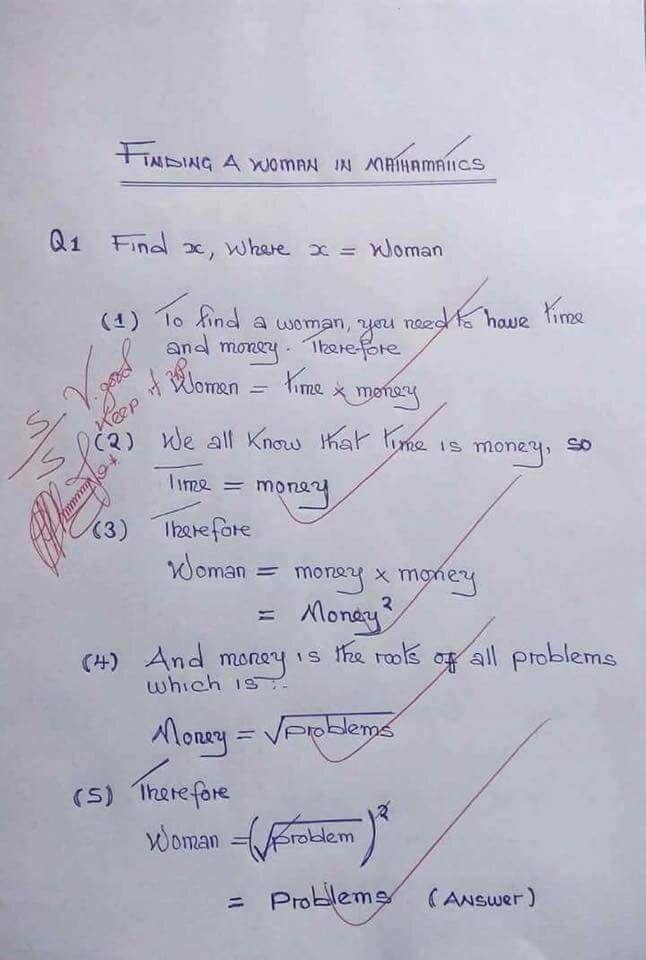 FINDING A WOMAN IN MATHAMATICS
Q1 Find x, where x = Woman
(1) To find a woman, you need to have time
and money. Therefore
Women = time x money
(2) We all know that time is money, so
Time = money
(3) Therefore
Woman = money x money
= Money²
(4) And money is the roots of all problems
which is :.
Money = √problems
(5) Therefore
Woman = (√problem)²
= Problems (Answer)
5
5
V. good
Keep it up